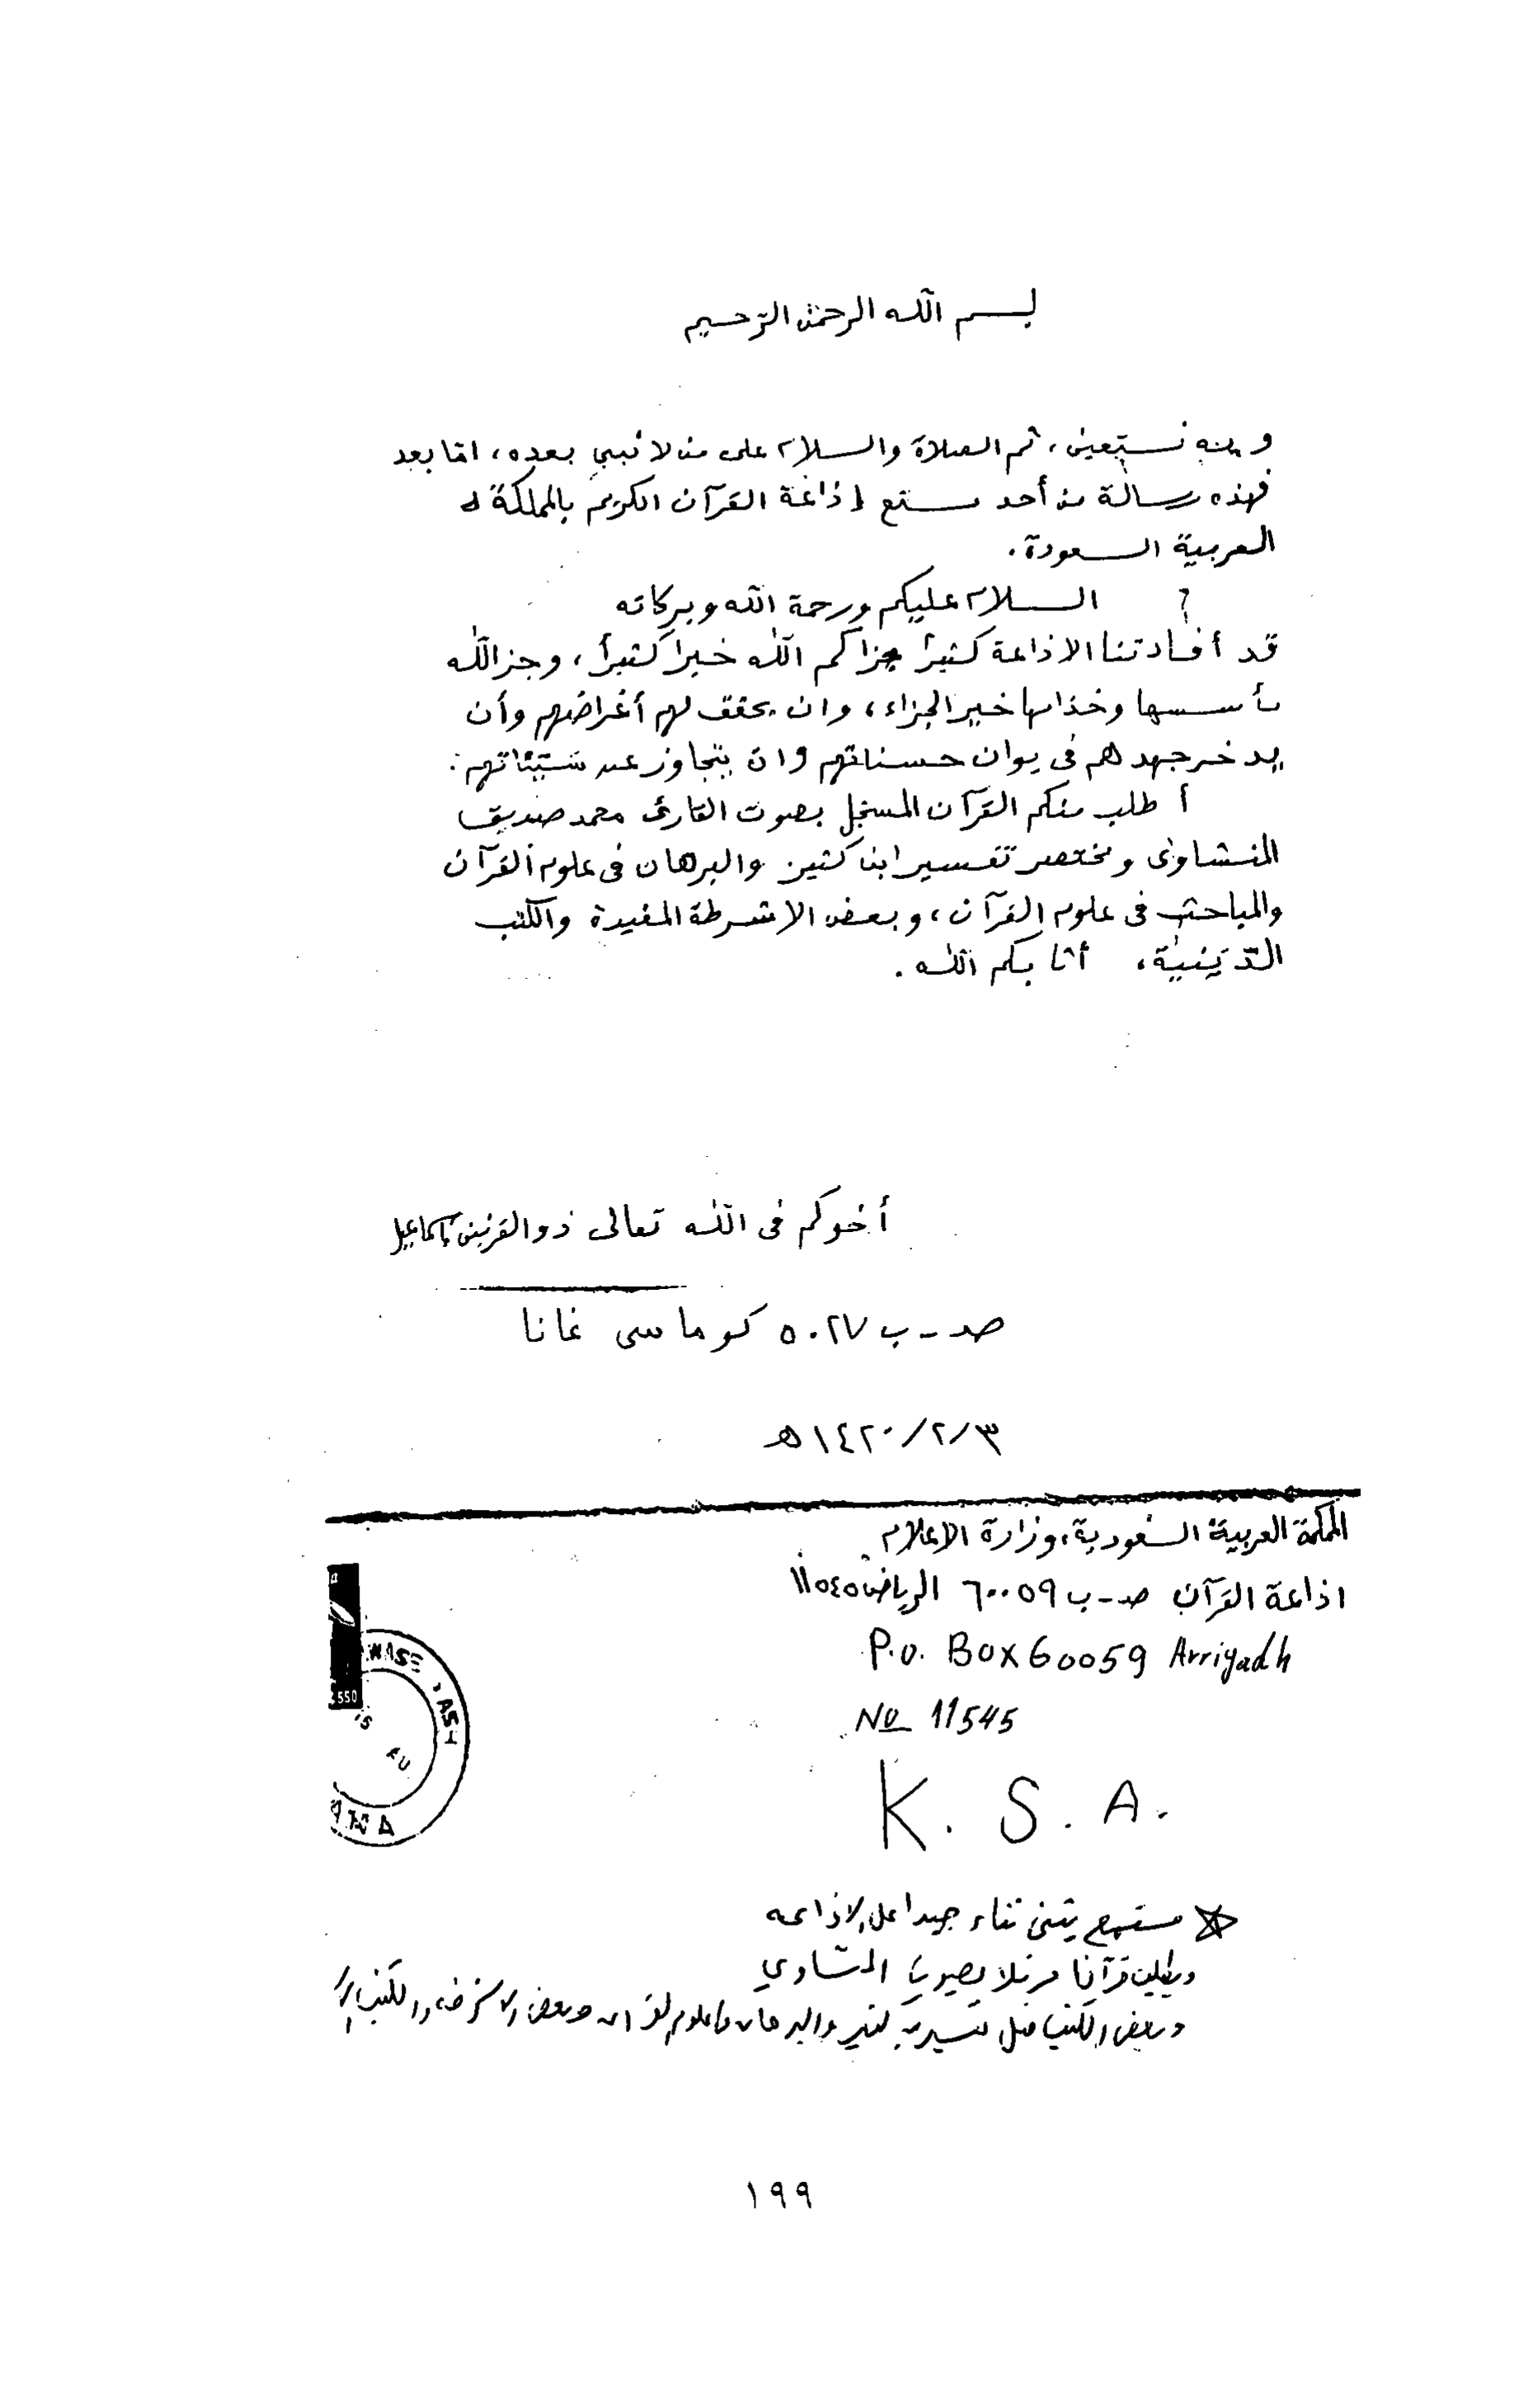 بسم الله الرحمن الرّحيم
وبه نستعين، ثم الصلاة والسلام على من لا نبي بعده، امّا بعد
فهذه رسالة من أحد مستع إذاعة القرآن الكريم بالمملكة
العربية السعودة.
السلام عليكم ورحمة الله وبركاته
قد أفادتنا الاذاعة كثيراً جزاكم الله خيراً كثيراً، وجز الله
مأسسها وخدامها خير الجزاء، وان يحقق لهم أغراضهم وأن
يدخر جهدهم فى يوان حسناتهم وان يتجاوز عن سَيّئاتهم.
أطلب منكم القرآن المسجل بصوت القارئ محمد صديق
المنشاوى ومختصر تفسير ابن كثير والبرهان فى علوم القرآن
والمباحث فى علوم القرآن، وبعض الاشرطة المفيدة والكتب
الدّينيّة، أثابكم الله.
أخوكم فى الله تعالى ذو القرنين
صـ - ب ٥٠٢٧ كوماسى غانا
٣/٢/١٤٢٠هـ
المملكة العربية السعودية، وزارة الاعلام
اذاعة القرآن صـ - ب ٦٠٠٥٩ الرياض ١١٥٤٥
P.O. BOX 60059 Arriyadh
No 11545
K. S. A.
550
مستمع يثني ثناء جيدا على الاذاعه
ويطلب قرآنا مرتلا بصوت المنشاوي
وبعض الكتب مثل تفسير بن كثير والبرهان وعلوم القرآن وبعض الاشرطه والكتب
١٩٩